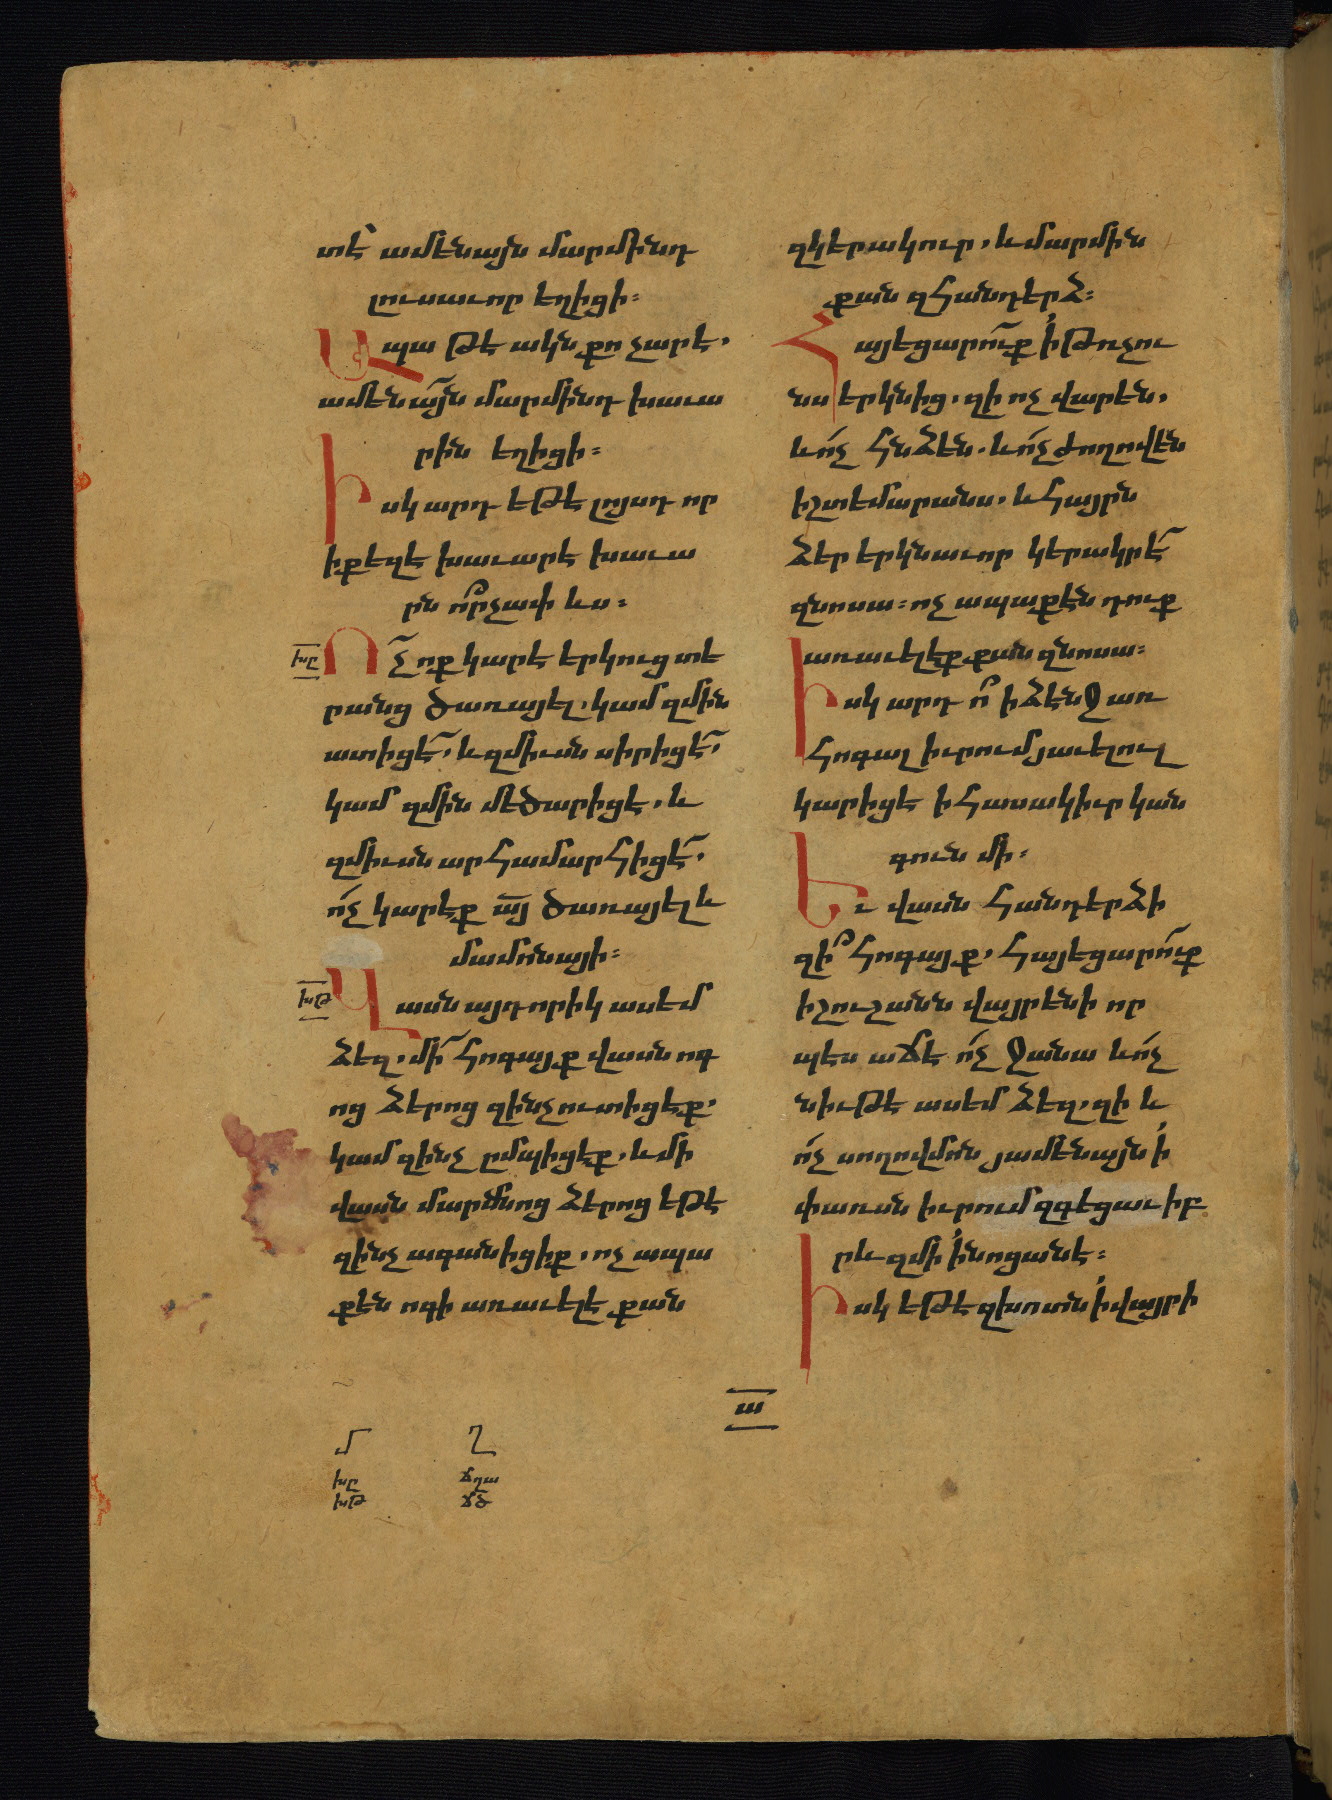 տէ՝ ամենայն մարմինդ
լուսաւոր եղիցի։
Ապա թէ ակն քո չար է,
ամենայն մարմինդ խաւա
րին եղիցի։
Իսկ արդ եթէ լոյսդ որ
ի քեզ է խաւար է խաւա
րն ո՞րչափ ևս։
խը
Ո՛չ ոք կարէ երկուց տե
րանց ծառայել. կամ զմին
ատիցէ՛, և զմիւսն սիրիցէ՛,
կամ զմին մեծարիցէ, և
զմիւսն արհամարհիցէ՛,
ո՛չ կարէք ա՟յ ծառայել և
մամոնայի։
խթ
Վասն այդորիկ ասեմ
ձեզ. մի՛ հոգայք վասն ոգ
ոց ձերոց զինչ ուտիցէք,
կամ զինչ ըմպիցէք, և մի
վասն մարմնոց ձերոց եթէ
զինչ ագանիցիք, ոչ ապա
քէն ոգի առաւել է քան
զկերակուր, և մարմին
քան զհանդերձ։
Հայեցարո՛ւք ի թռչու
նս երկնից, զի ոչ վարեն,
և ո՛չ հնձեն. և ո՛չ ժողովեն
ի շտեմարանս, և հայրն
ձեր երկնաւոր կերակրէ՛
զնոսա։ ոչ ապաքէն դուք
առաւել էք քան զնոսա։
Իսկ արդ ո՞ ի ձէնջ առ
հոգալ իւրում յաւելուլ
կարիցէ ի հասակ իւր կան
գուն մի։
Եւ վասն հանդերձի
զի՞ հոգայք, հայեցարո՛ւք
ի շուշանն վայրենի որ
պէս աճէ ո՛չ ջանա և ո՛չ
նիւթէ ասեմ ձեզ, զի և
ո՛չ սողովմոն յամենայն ի
փառսն իւրում զգեցաւ իբ
րև զմի ի նոցանէ։
Իսկ եթէ զխոտն ի վայրի
ա
մ ղ
խը ճղա
խթ ճծ